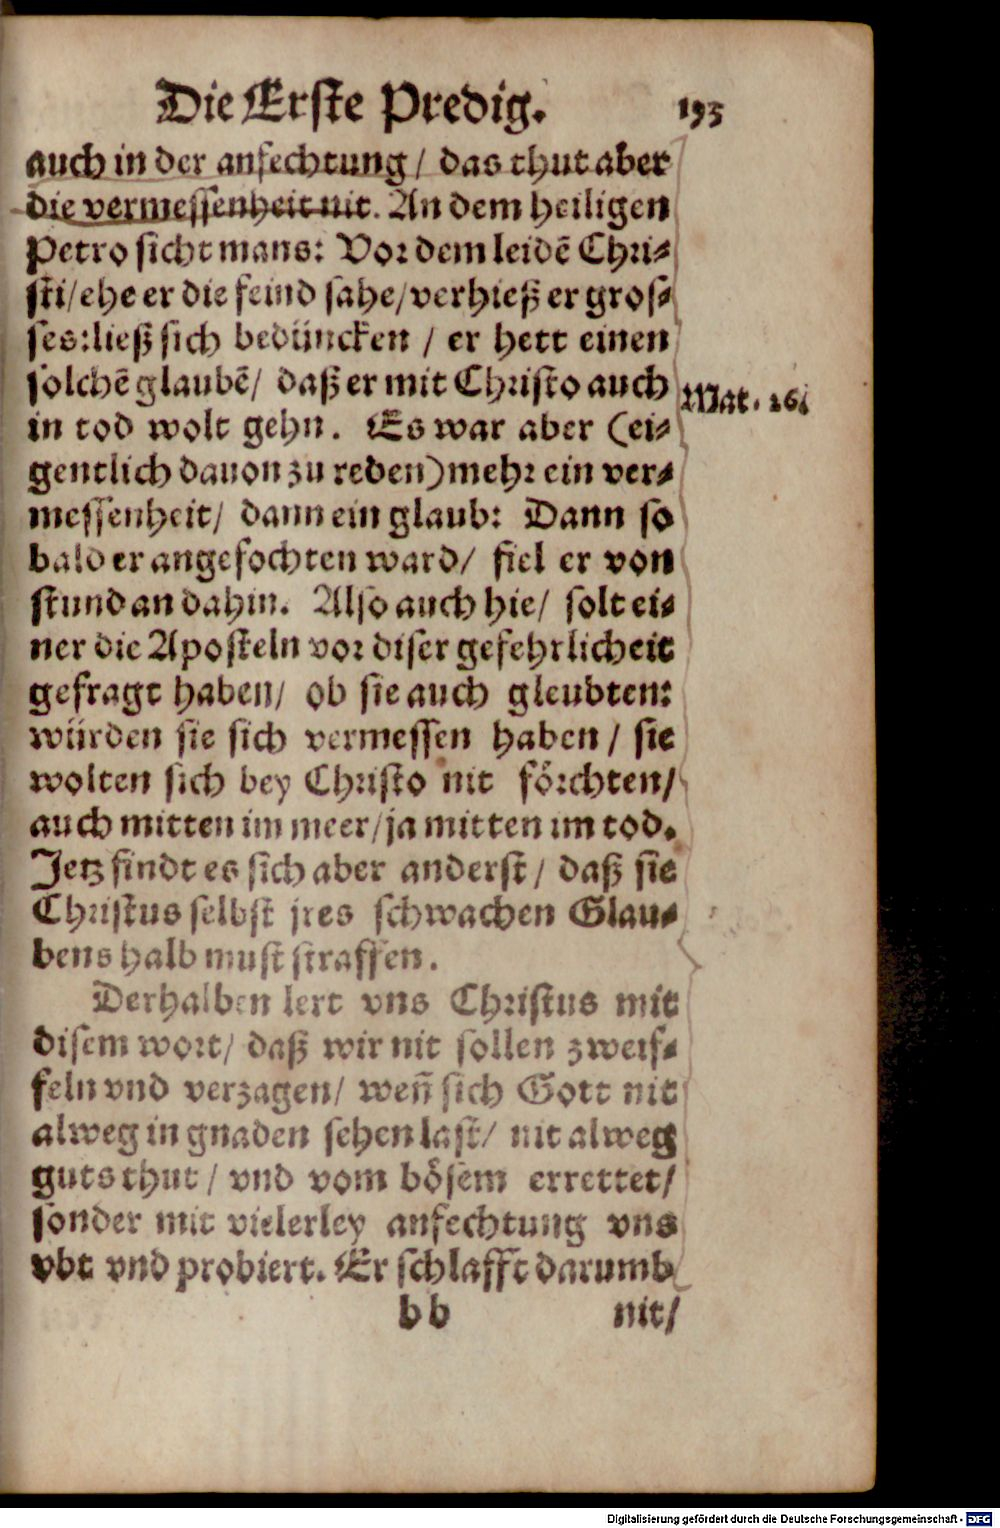 Die Erste Predig. 193
auch in der anfechtung / das thut aber
die vermessenheit nit. An dem heiligen
Petro sicht mans: Vor dem leidẽ Chri-
sti/ ehe er die feind sahe/ verhieß er gros-
ses: ließ sich bedüncken / er hett einen
solchẽ glaubẽ/ daß er mit Christo auch
Mat. 26.
in tod wolt gehn. Es war aber (ei-
gentlich dauon zu reden) mehr ein ver-
messenheit/ dann ein glaub: Dann so
bald er angefochten ward/ fiel er von
stund an dahin. Also auch hie/ solt ei-
ner die Aposteln vor diser gefehrlicheit
gefragt haben/ ob sie auch gleubten:
würden sie sich vermessen haben / sie
wolten sich bey Christo nit förchten/
auch mitten im meer/ ja mitten im tod.
Jetz findt es sich aber anderst / daß sie
Christus selbst jres schwachen Glau-
bens halb must straffen.
Derhalben lert vns Christus mit
disem wort/ daß wir nit sollen zweif-
feln vnd verzagen/ weñ sich Gott nit
alweg in gnaden sehen last/ nit alweg
guts thut / vnd vom bösem errettet/
sonder mit vielerley anfechtung vns
vbt vnd probiert. Er schlafft darumb
bb nit/
Digitalisierung gefördert durch die Deutsche Forschungsgemeinschaft - DFG